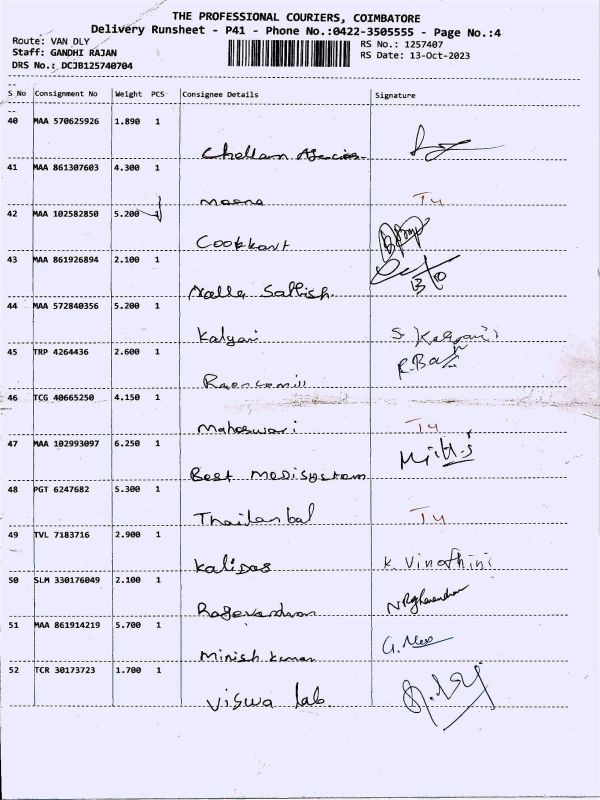 THE PROFESSIONAL COURIERS, COIMBATORE
Delivery Runsheet - P41 - Phone No.:0422-3505555 - Page No.:4
Route: VAN DLY
RS No.: 1257407
Staff: GANDHI RAJAN
RS Date: 13-Oct-2023
DRS No.: DCJB125740704
S No Consignment No Weight PCS Consignee Details Signature
40 MAA 570625926 1.890 1
Chellam Agencies
41 MAA 861307603 4.300 1
meena
42 MAA 102582850 5.200
Cookkart
43 MAA 861926894 2.100 1
Nalla Sathish.
44 MAA 572840356 5.200 1
Kalyani S. Kalyani
45 TRP 4264436 2.600 1
46 TCG 40665250 4.150 1
Maheswari
47 MAA 102993097 6.250 1
Best Medisystem
48 PGT 6247682 5.300 1
49 TVL 7183716 2.900 1
Kalidas K. Vinothini
50 SLM 330176049 2.100 1
51 MAA 861914219 5.700 1
Minish kumar
52 TCR 30173723 1.700 1
Viswa lab.